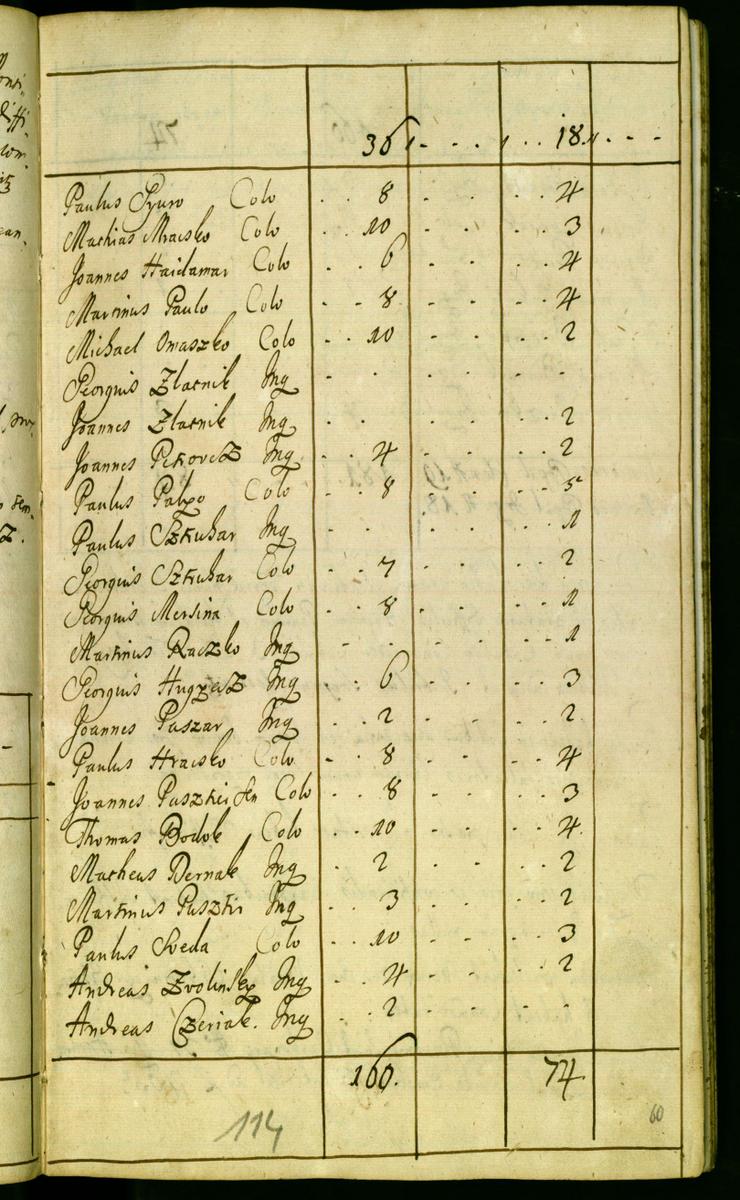 36 . . . . 18 . . .
Paulus Gyuro Colo . . 8 . . . 4
Mathias Mracsko Colo . . 10 . . . . 3
Joannes Haidamar Colo . . 6 . . . . 4
Martinus Paulo Colo . . 8 . . . . 4
Michael Onaszko Colo . . 10 . . . . 2
Georgius Zlatnik Inq . . . . . .
Joannes Zlatnik Inq . . . . . . 2
Joannes Petrovicz Inq . . 4 . . . . 2
Paulus Colo . . 8 . . . . 5
Paulus Sztuhar Inq . . . . . . 1
Georgius Sztuhar Colo . . 7 . . . . 2
Georgius Mersina Colo . . 8 . . . . 1
Martinus Raczko Inq . . . . . . 1
Georgius Inq . . 6 . . . . 3
Joannes Puszar Inq . . 2 . . . . 2
Paulus Hracsko Colo . . 8 . . . . 4
Joannes Sen Colo . . 8 . . . . 3
Thomas Bodok Colo . . 10 . . . . 4
Matheus Bernak Inq . . 2 . . . . 2
Martinus Inq . . 3 . . . . 2
Paulus Sveda Colo . . 10 . . . . 3
Andreas Zvolinsky Inq . . 4 . . . . 2
Andreas Czeriak. Inq . . 2 . . . .
160. 74
114
60